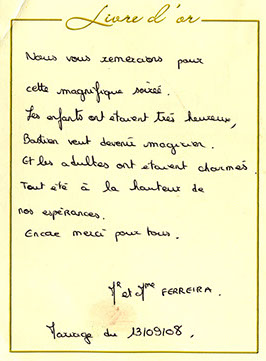 Livre d'or
Nous vous remercions pour
cette magnifique soirée.
Les enfants ont étaient très heureux,
Bastien veut devenir magicien.
Et les adultes ont étaient charmés.
Tout été à la hauteur de
nos espérances.
Encore merci pour tous.
Mr et Mme FERREIRA.
Mariage du 13/09/08.